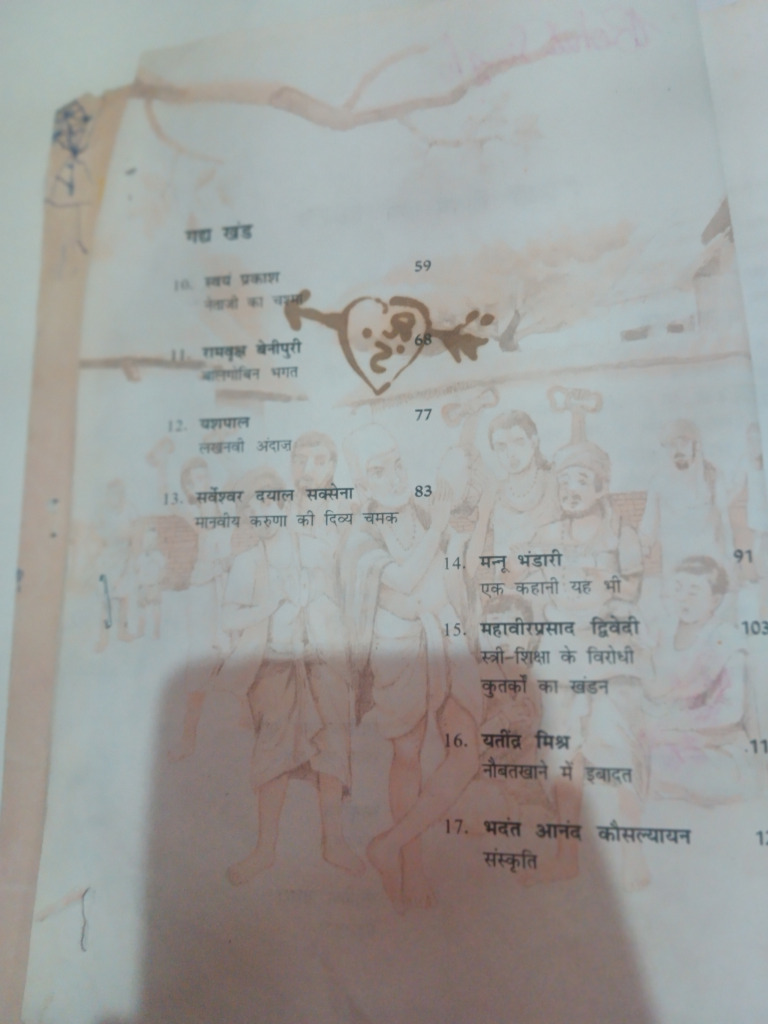 गद्य खंड
10. स्वयं प्रकाश 59
नेताजी का चश्मा
11. रामवृक्ष बेनीपुरी 68
बालगोबिन भगत
12. यशपाल 77
लखनवी अंदाज़
13. सर्वेश्वर दयाल सक्सेना 83
मानवीय करुणा की दिव्य चमक
14. मन्नू भंडारी 91
एक कहानी यह भी
15. महावीरप्रसाद द्विवेदी 103
स्त्री-शिक्षा के विरोधी
कुतर्कों का खंडन
16. यतींद्र मिश्र
नौबतखाने में इबादत
17. भदंत आनंद कौसल्यायन
संस्कृति